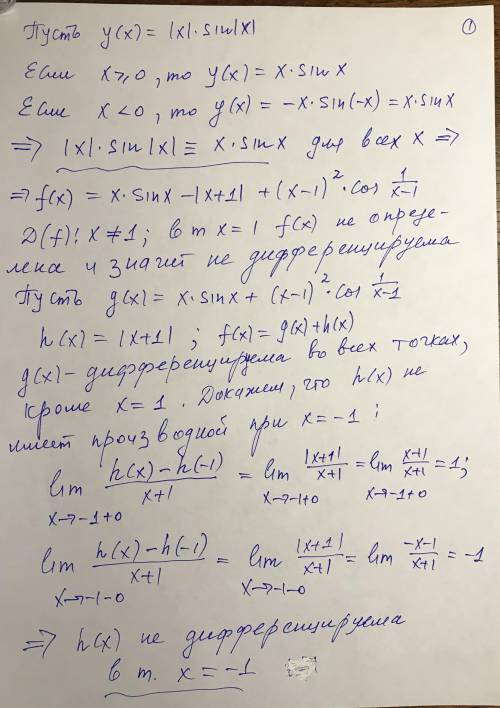 ①
Пусть y(x) = |x|·sin|x|
Если x ⩾ 0, то y(x) = x·sin x
Если x < 0, то y(x) = -x·sin(-x) = x·sin x
=> |x|·sin|x| ≡ x·sin x для всех x =>
=> f(x) = x·sin x - |x+1| + (x-1)²·cos 1/(x-1)
D(f): x ≠ 1; в т x = 1 f(x) не опреде-
лена и значит не дифференцируема
Пусть g(x) = x·sin x + (x-1)²·cos 1/(x-1)
h(x) = |x+1| ; f(x) = g(x) + h(x)
g(x) - дифференцируема во всех точках,
кроме x = 1. Докажем, что h(x) не
имеет производной при x = -1 ;
lim x→-1+0 (h(x) - h(-1))/(x+1) = lim x→-1+0 |x+1|/(x+1) = lim x→-1+0 (x+1)/(x+1) = 1;
lim x→-1-0 (h(x) - h(-1))/(x+1) = lim x→-1-0 |x+1|/(x+1) = lim (-x-1)/(x+1) = -1
=> h(x) не дифференцируема
в т. x = -1